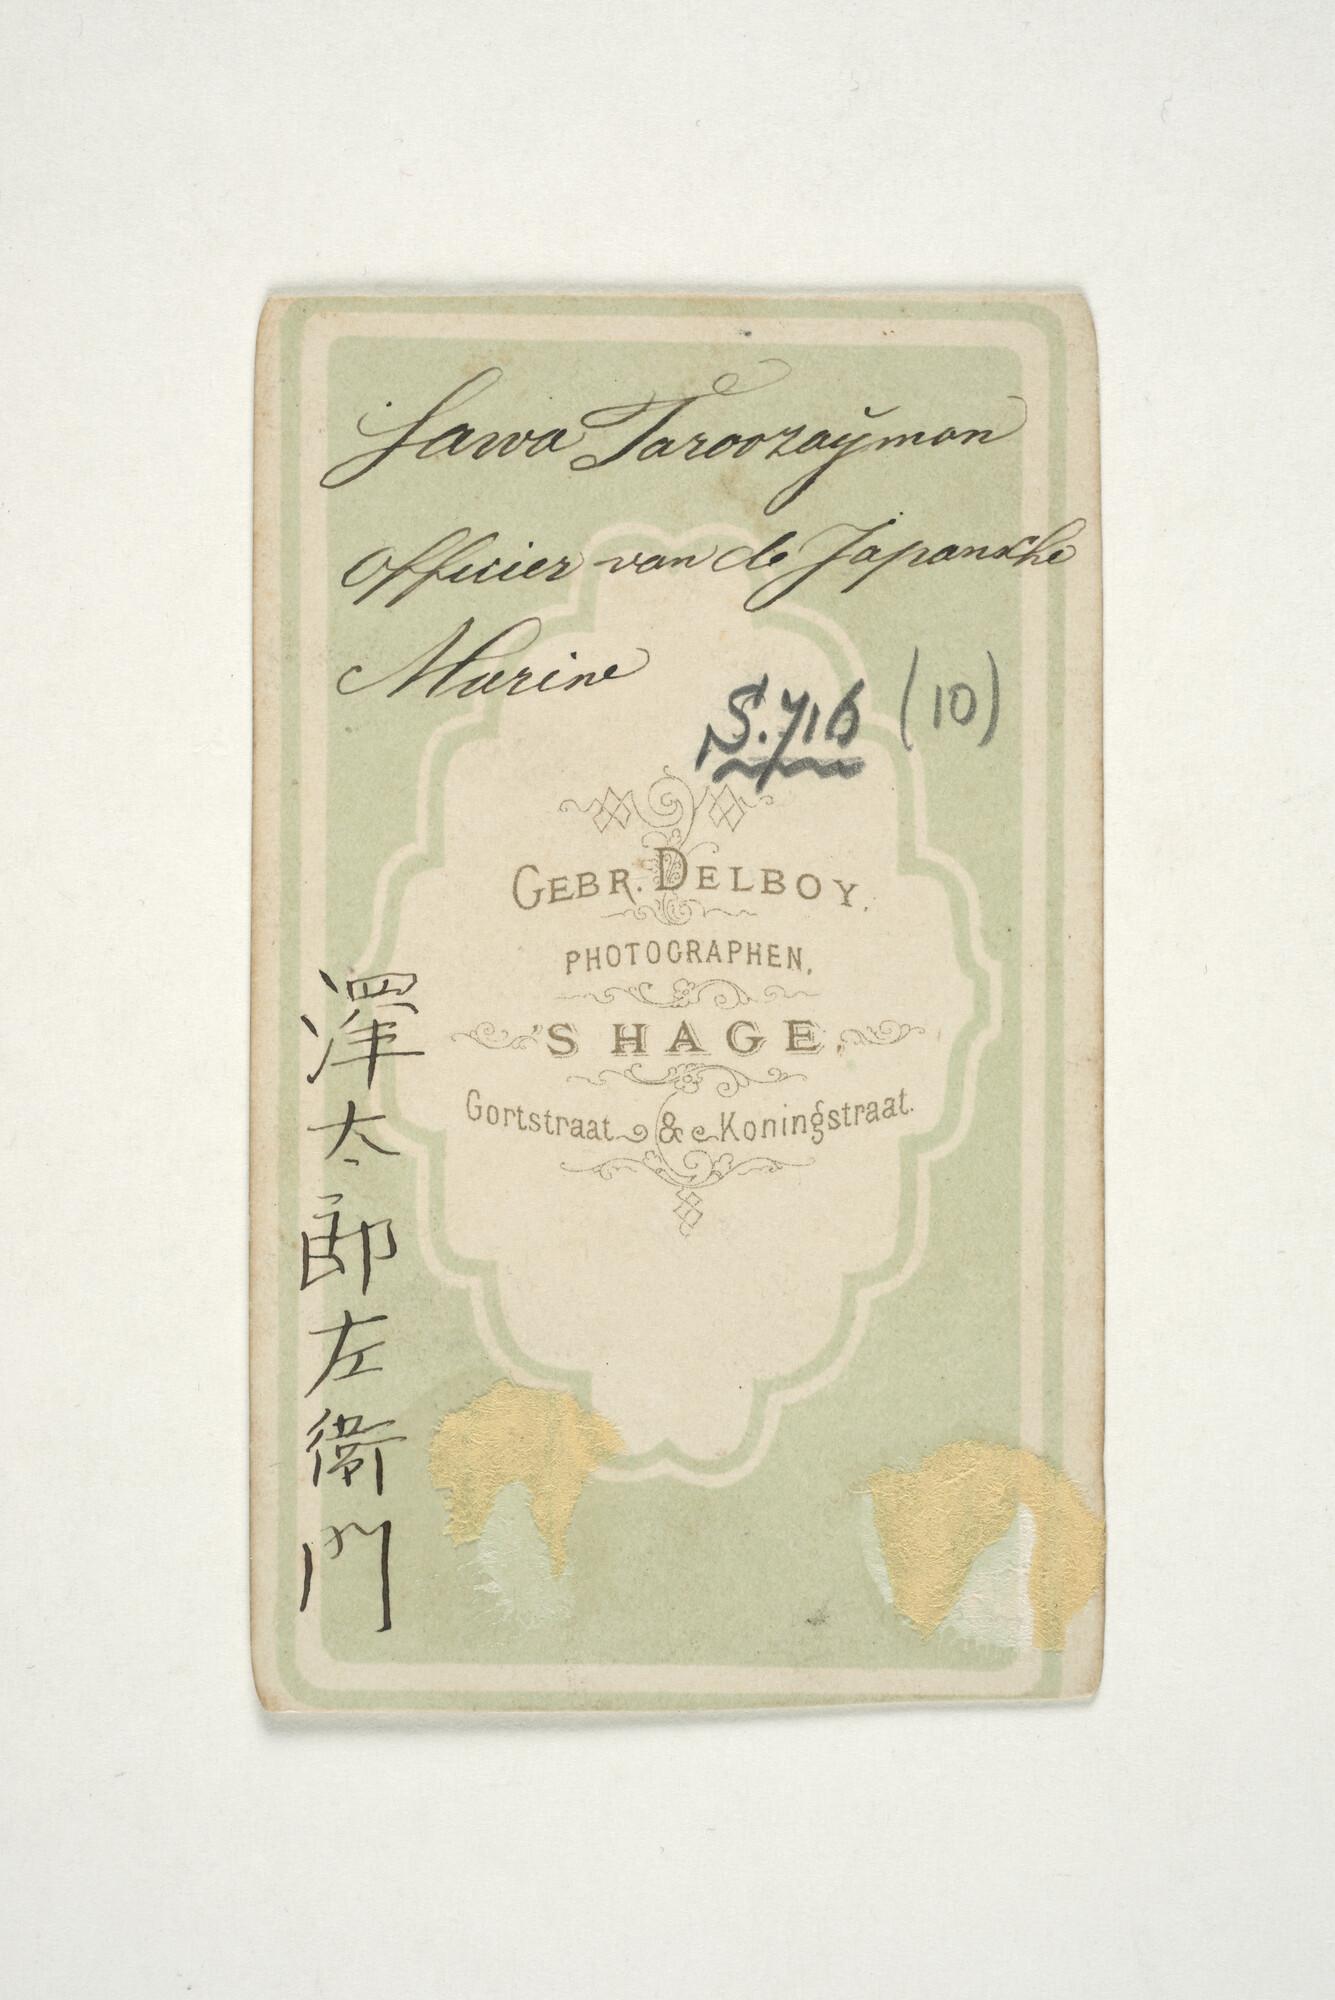 Sawa Taroozaÿmon
Officier van de Japansche
Marine
S.716 (10)
GEBR. DELBOY.
PHOTOGRAPHEN,
'S HAGE,
Gortstraat & Koningstraat.
澤太郎左衛門